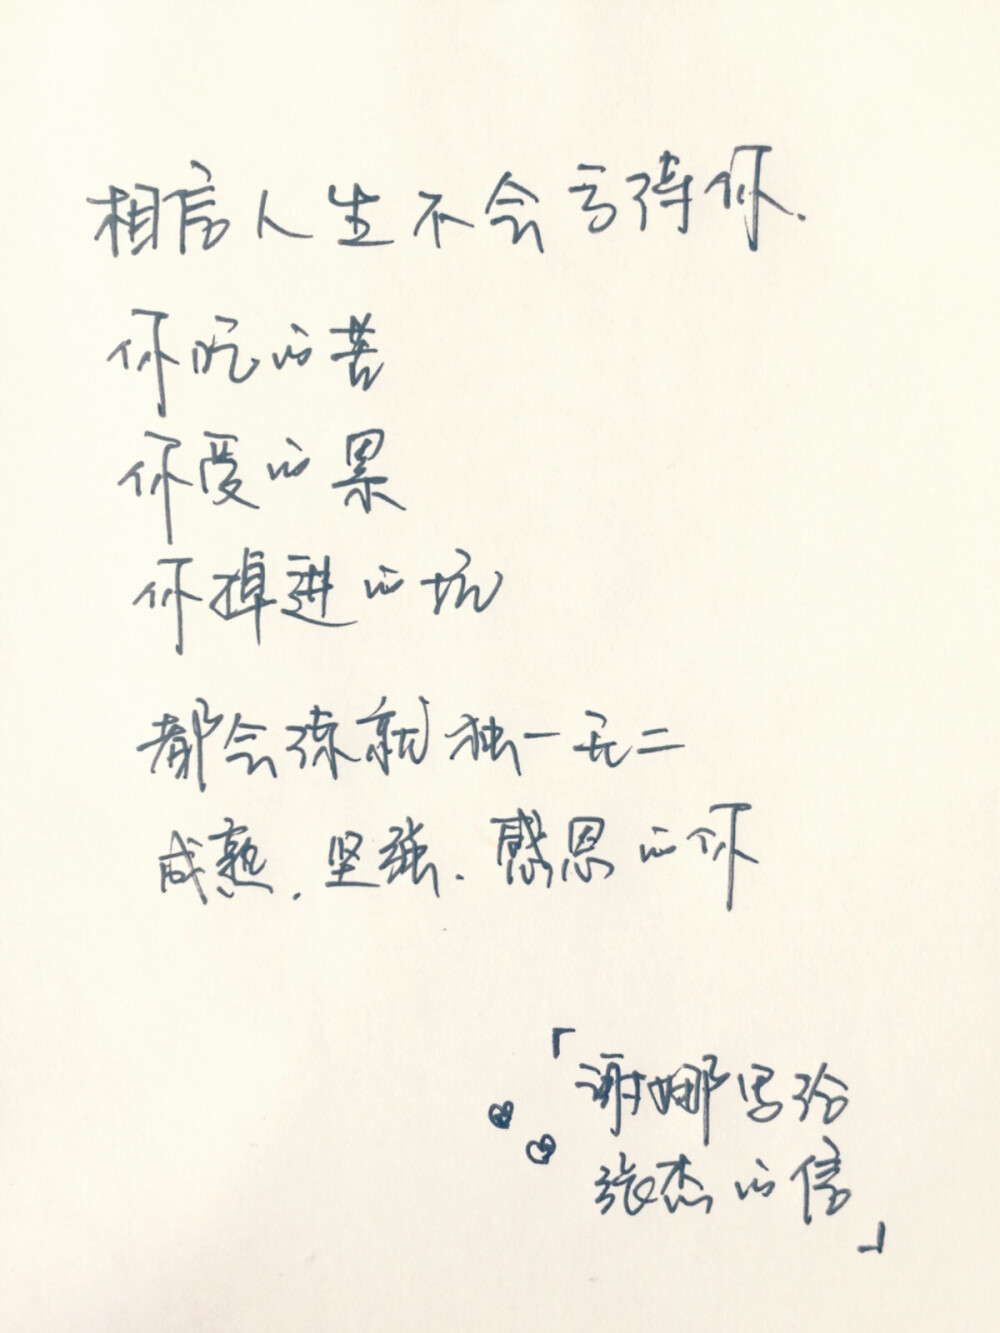 相信人生不会亏待你.
你吃的苦
你受的累
你掉进的坑
都会练就独一无二
成熟.坚强.感恩的你
「谢娜写给
张杰的信」